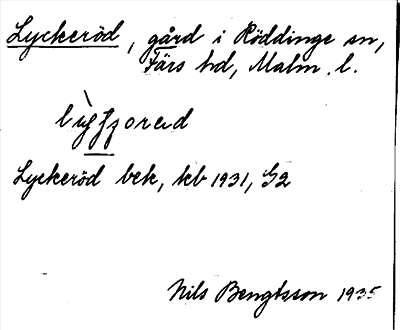 Lyckeröd, gård i Röddinge sn,
Färs hd, Malm. l.
Lyckeröd bek, kb 1931, G2
Nils Bengtsson 1935